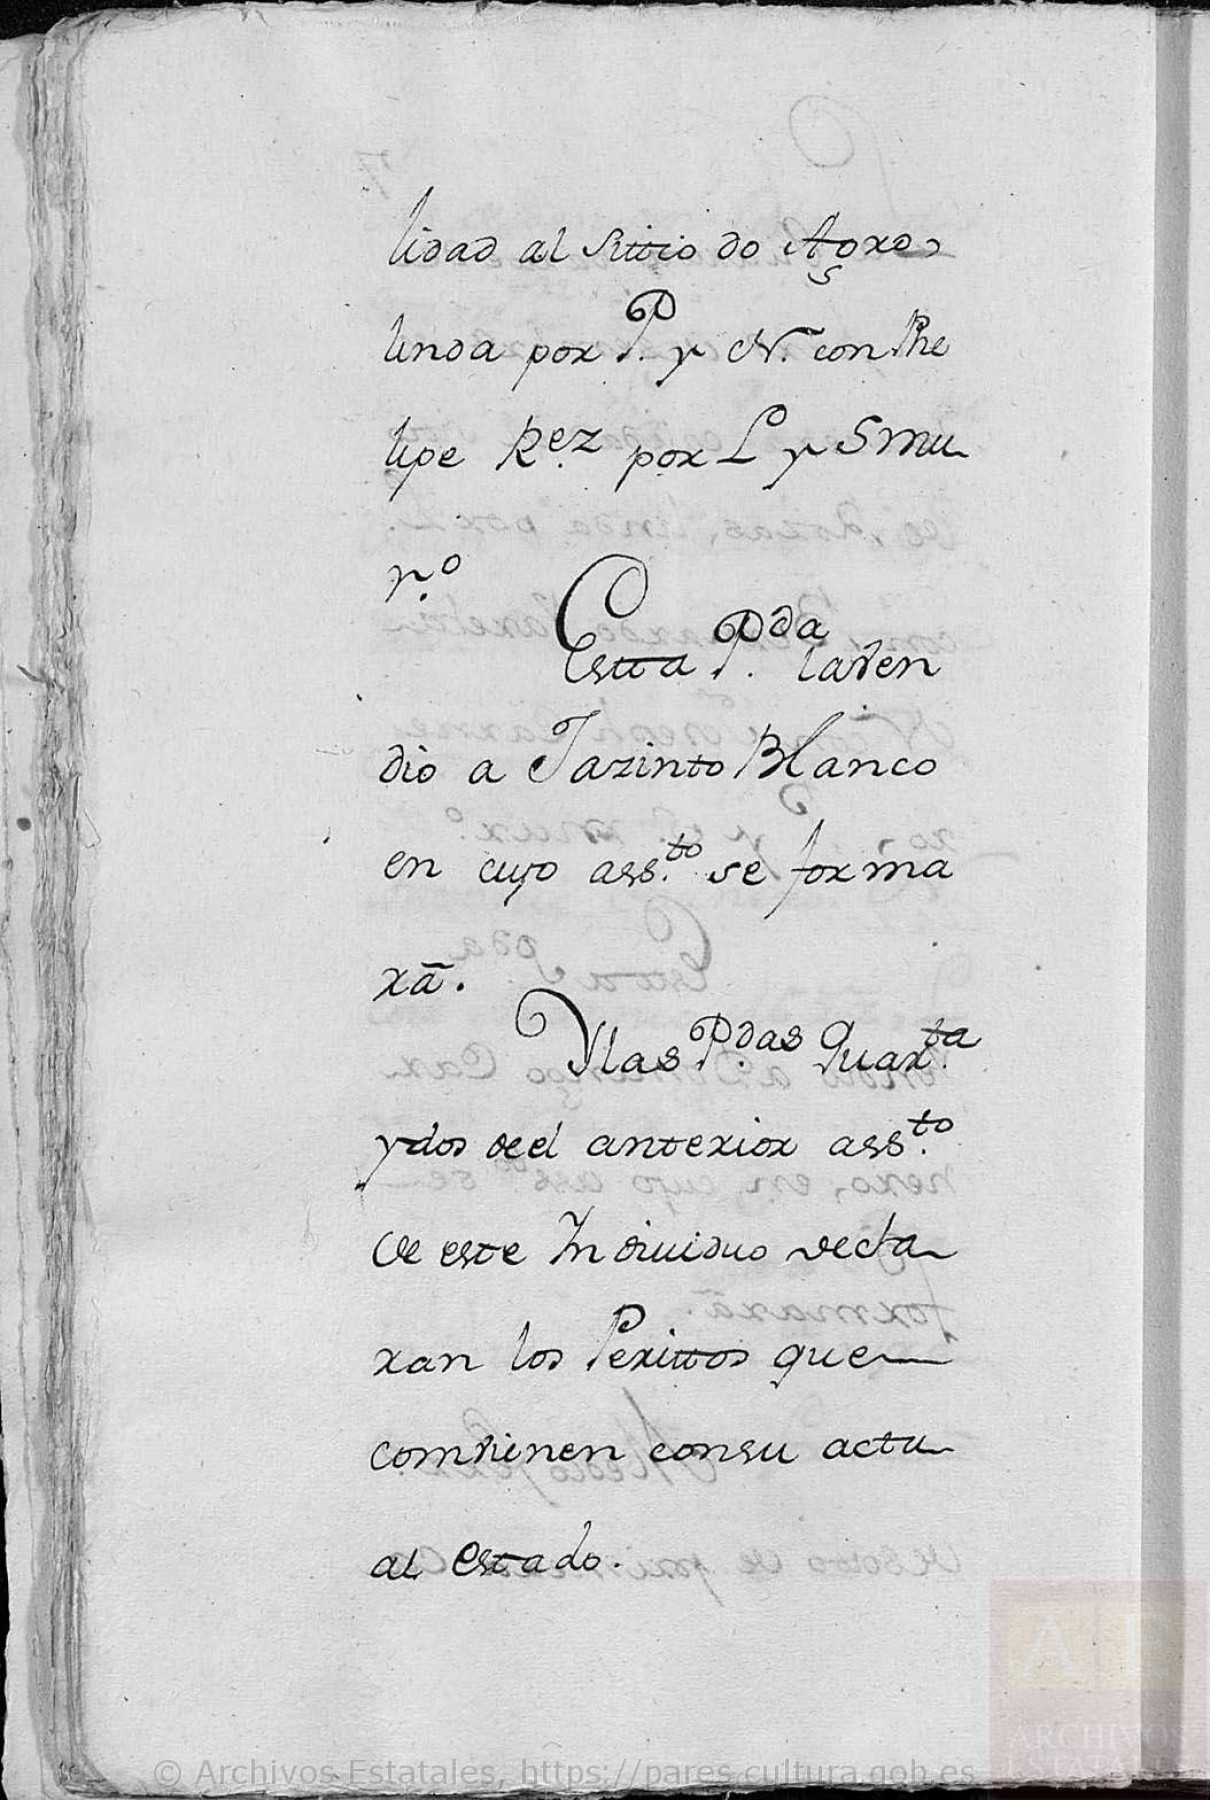 lidad al Sittio do Agros
linda por P. y N. con Phe
lipe Rez. por L y S mu
r.º
Estta P.da la ven
dio a Jazinto Blanco
en cuyo ass.to se forma
rã.
Y las P.das Quar.ta
y dos de el anterior ass.to
de este Individuo decla
ran los Perittos que
combienen con su actu
al estado.
© Archivos Estatales, https://pares.cultura.gob.es
AE
ARCHIVOS
ESTATALES